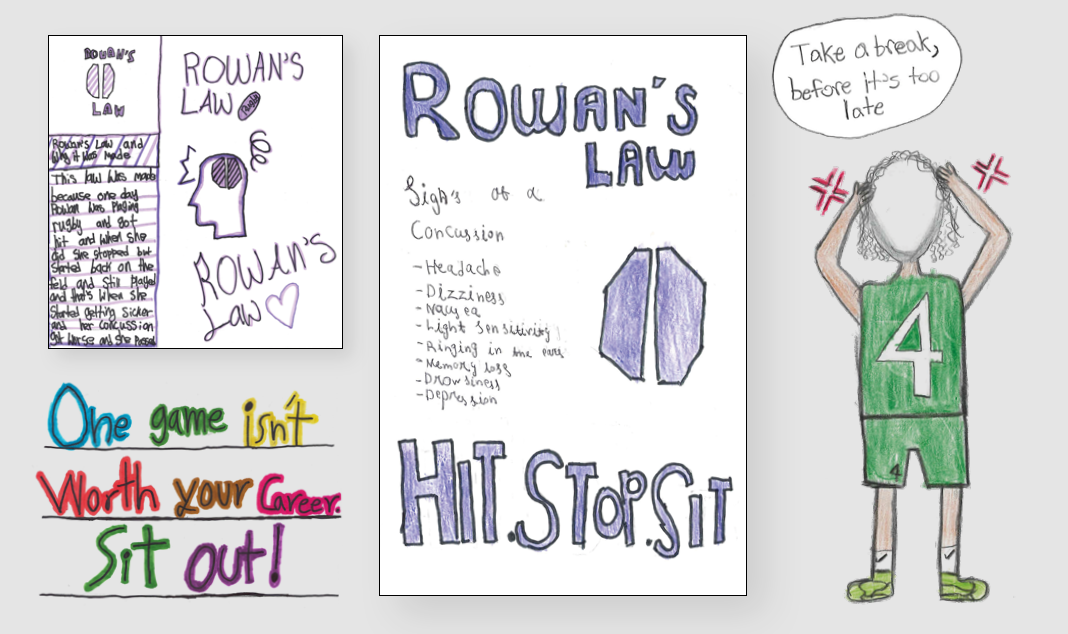 ROWAN'S
LAW
Rowan's Law and
Why it Was made
This law Was made
because one day
Rowan Was Playing
rugby and Got
hit and When she
did She stopped but
Started back on the
feild and Still Played
and that's When she
Started getting Sicker
and her concussion
Got Worse and She Passed
ROWAN'S
LAW
ROWAN'S
LAW
One game isn't
Worth your Career.
Sit out!
ROWAN'S
LAW
Sign's of a
Concussion
-Headache
-Dizziness
-Nausea
-Light sensitivity
-Ringing in the ears
-Memory loss
-Drowsiness
-Depression
HIT.STOP.SIT
Take a break,
before it's too
late
4
4